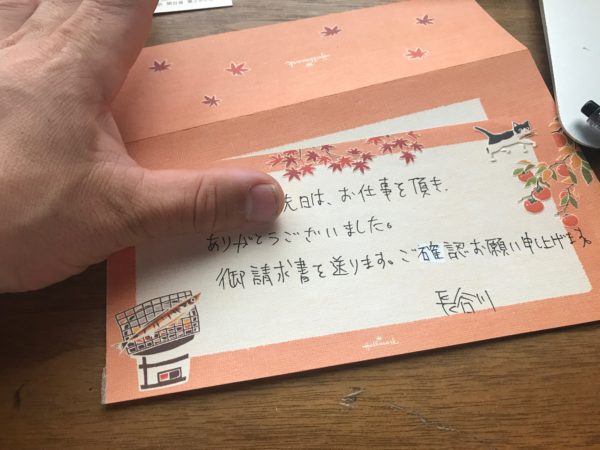 Hallmark
先日は、お仕事を頂き、
ありがとうございました。
御請求書を送ります。ご確認お願い申し上げます。
長谷川
Hallmark